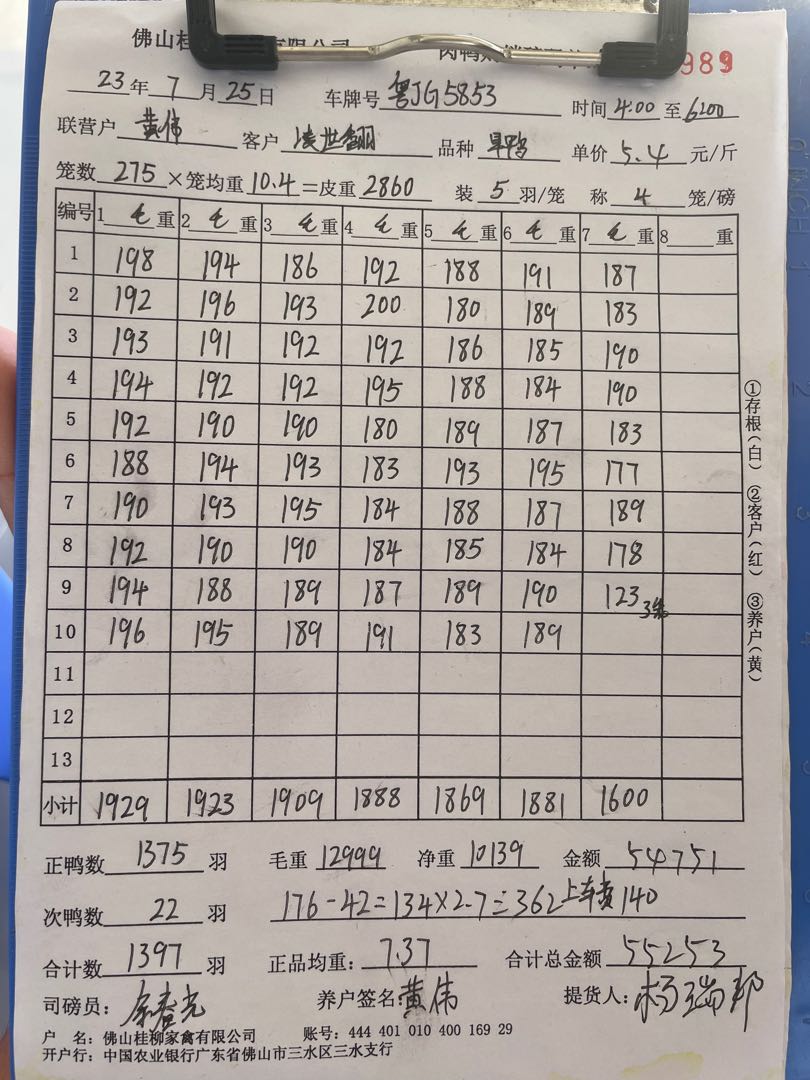 佛山桂
989
23年 7月25日 车牌号 粤JG5853 时间 4:00 至 6:00
联营户 黄伟 客户 凌世翻 品种 旱鸭 单价 5.4 元/斤
笼数 275 ×笼均重 10.4 =皮重 2860 装 5 羽/笼 称 4 笼/磅
编号 1 毛 重 2 毛 重 3 毛 重 4 毛 重 5 毛 重 6 毛 重 7 毛 重 8 重
1 198 194 186 192 188 191 187
2 192 196 193 200 180 189 183
3 193 191 192 192 186 185 190
4 194 192 192 195 188 184 190
5 192 190 190 180 189 187 183
6 188 194 193 183 193 195 177
7 190 193 195 184 188 187 189
8 192 190 190 184 185 184 178
9 194 188 189 187 189 190 123 3笼
10 196 195 189 191 183 189
11
12
13
小计 1929 1923 1909 1888 1869 1881 1600
正鸭数 1375 羽 毛重 12999 净重 10139 金额 54751
次鸭数 22 羽 176-42=134×2.7=362 上车费140
合计数 1397 羽 正品均重: 7.37 合计总金额 55253
司磅员: 养户签名 黄伟 提货人: 杨瑞邦
户 名: 佛山桂柳家禽有限公司 账号: 444 401 010 400 169 29
开户行: 中国农业银行广东省佛山市三水区三水支行
①存根(白) ②客户(红) ③养户(黄)